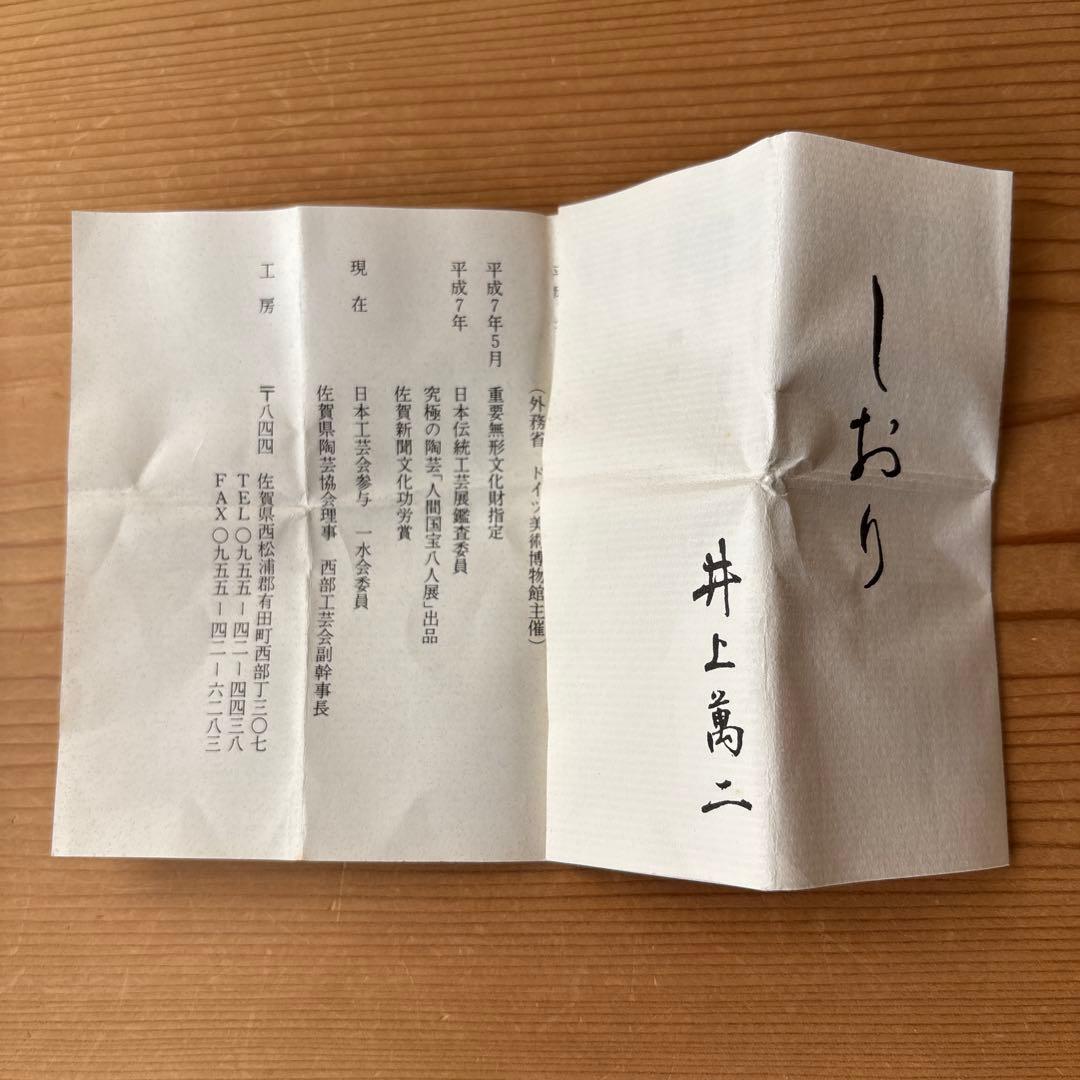 しおり
井上萬二
(外務省 ドイツ美術博物館主催)
平成7年5月 重要無形文化財指定
平成7年 日本伝統工芸展鑑査委員
究極の陶芸「人間国宝八人展」出品
佐賀新聞文化功労賞
現在 日本工芸会参与 一水会委員
佐賀県陶芸協会理事 西部工芸会副幹事長
工房 〒八四四 佐賀県西松浦郡有田町西部丁三〇七
TEL〇九五五-四二-四四三八
FAX〇九五五-四二-六二八三